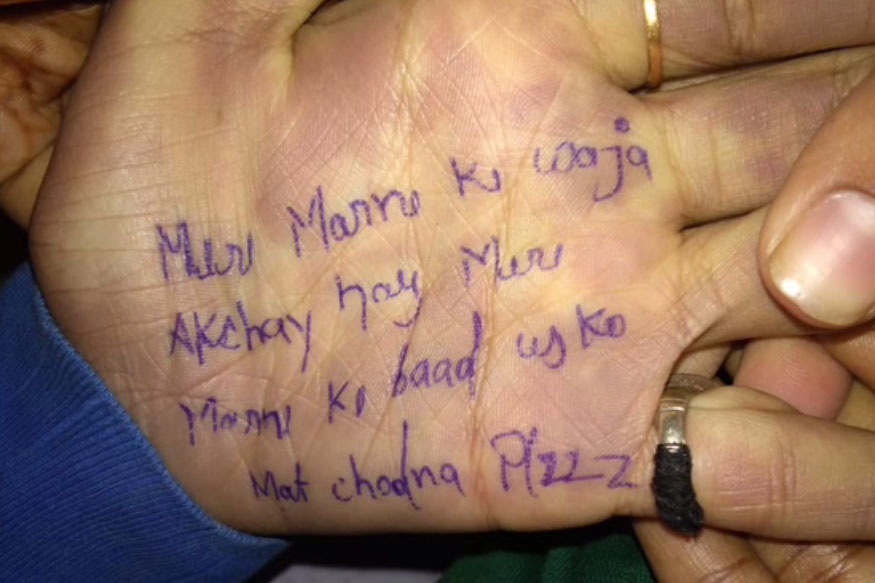 Meri Marne Ki waja
Akchay hay Mere
Marne Ki baad us ko
Mat chodna Plzzz